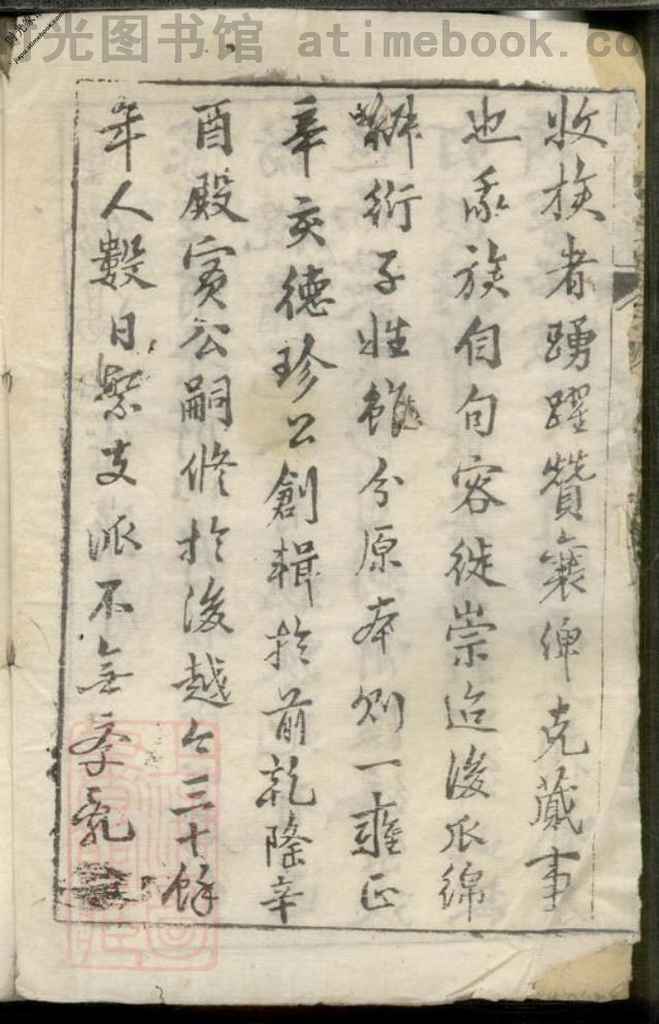 时光图书馆 atimebook.co
收族者踴躍贊襄俾克蕆事
也我族自句容徙崇迨後瓜綿
衍子姓雖分原本則一雍正
辛亥德珍公創輯於前乾隆辛
酉殿賓公嗣修於後越今三十餘
年人數日繁支派不無紊亂